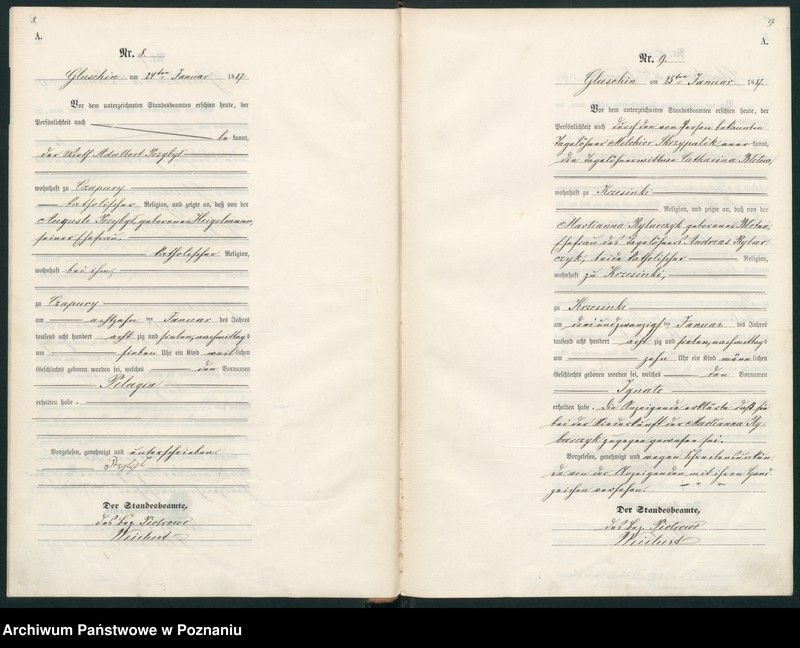 8.
A.
Nr. 8.
Gluschin am 24ten Januar 1887
Vor dem unterzeichneten Standesbeamten erschien heute, der
Persönlichkeit nach
be kannt,
der Wirth Adalbert Przybyl
wohnhaft zu Czapury
katholischer Religion, und zeigte an, daß von der
Auguste Przybyl geborenen Heigelmann,
seiner Ehefrau,
katholischer Religion,
wohnhaft bei ihm,
zu Czapury
am achtzehn ten Januar des Jahres
tausend acht hundert acht zig und sieben, nachmittags
um sieben Uhr ein Kind weib lichen
Geschlechts geboren worden sei, welches den Vornamen
Pelagia
erhalten habe.
Vorgelesen, genehmigt und unterschrieben.
Przybyl
Der Standesbeamte,
des Bez. Piotrowo
Weichert
9.
A.
Nr. 9.
Gluschin am 25ten Januar 1887
Vor dem unterzeichneten Standesbeamten erschien heute, der
Persönlichkeit nach durch den von Person bekannten
Tagelöhner Melchior Skrzypalik aner kannt,
die Tagelöhnerwittwe Catharina
wohnhaft zu Krzesinki
Religion, und zeigte an, daß von der
Marianna Rybarczyk geborenen
Ehefrau des Tagelöhners Andreas Rybar-
czyk, beide katholischer Religion,
wohnhaft zu Krzesinki,
zu Krzesinki
am dreiundzwanzigsten Januar des Jahres
tausend acht hundert acht zig und sieben, nachmittags
um zehn Uhr ein Kind männ lichen
Geschlechts geboren worden sei, welches den Vornamen
Ignatz
erhalten habe. Die Anzeigende erklärte daß sie
bei der Niederkunft der Marianna Ry-
barczyk zugegen gewesen sei.
Vorgelesen, genehmigt und wegen Schreibensunkun-
de von der Anzeigenden mit ihrem Hand-
zeichen versehen.
Der Standesbeamte,
des Bez. Piotrowo
Weichert
Archiwum Państwowe w Poznaniu